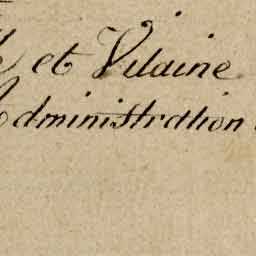 et Vilaine
Administration